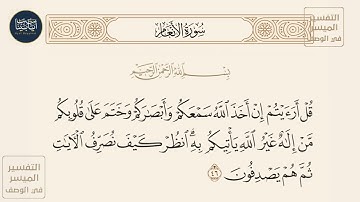 سُورَةُ الأَنْعَامِ
التفسير
الميسر
في الوصف
بِسْمِ اللَّهِ الرَّحْمَنِ الرَّحِيمِ
قُلْ أَرَءَيْتُمْ إِنْ أَخَذَ اللَّهُ سَمْعَكُمْ وَأَبْصَٰرَكُمْ وَخَتَمَ عَلَىٰ قُلُوبِكُم
مَّنْ إِلَٰهٌ غَيْرُ اللَّهِ يَأْتِيكُم بِهِ ۗ انظُرْ كَيْفَ نُصَرِّفُ الْءَايَٰتِ
ثُمَّ هُمْ يَصْدِفُونَ ٤٦
التفسير
الميسر
في الوصف